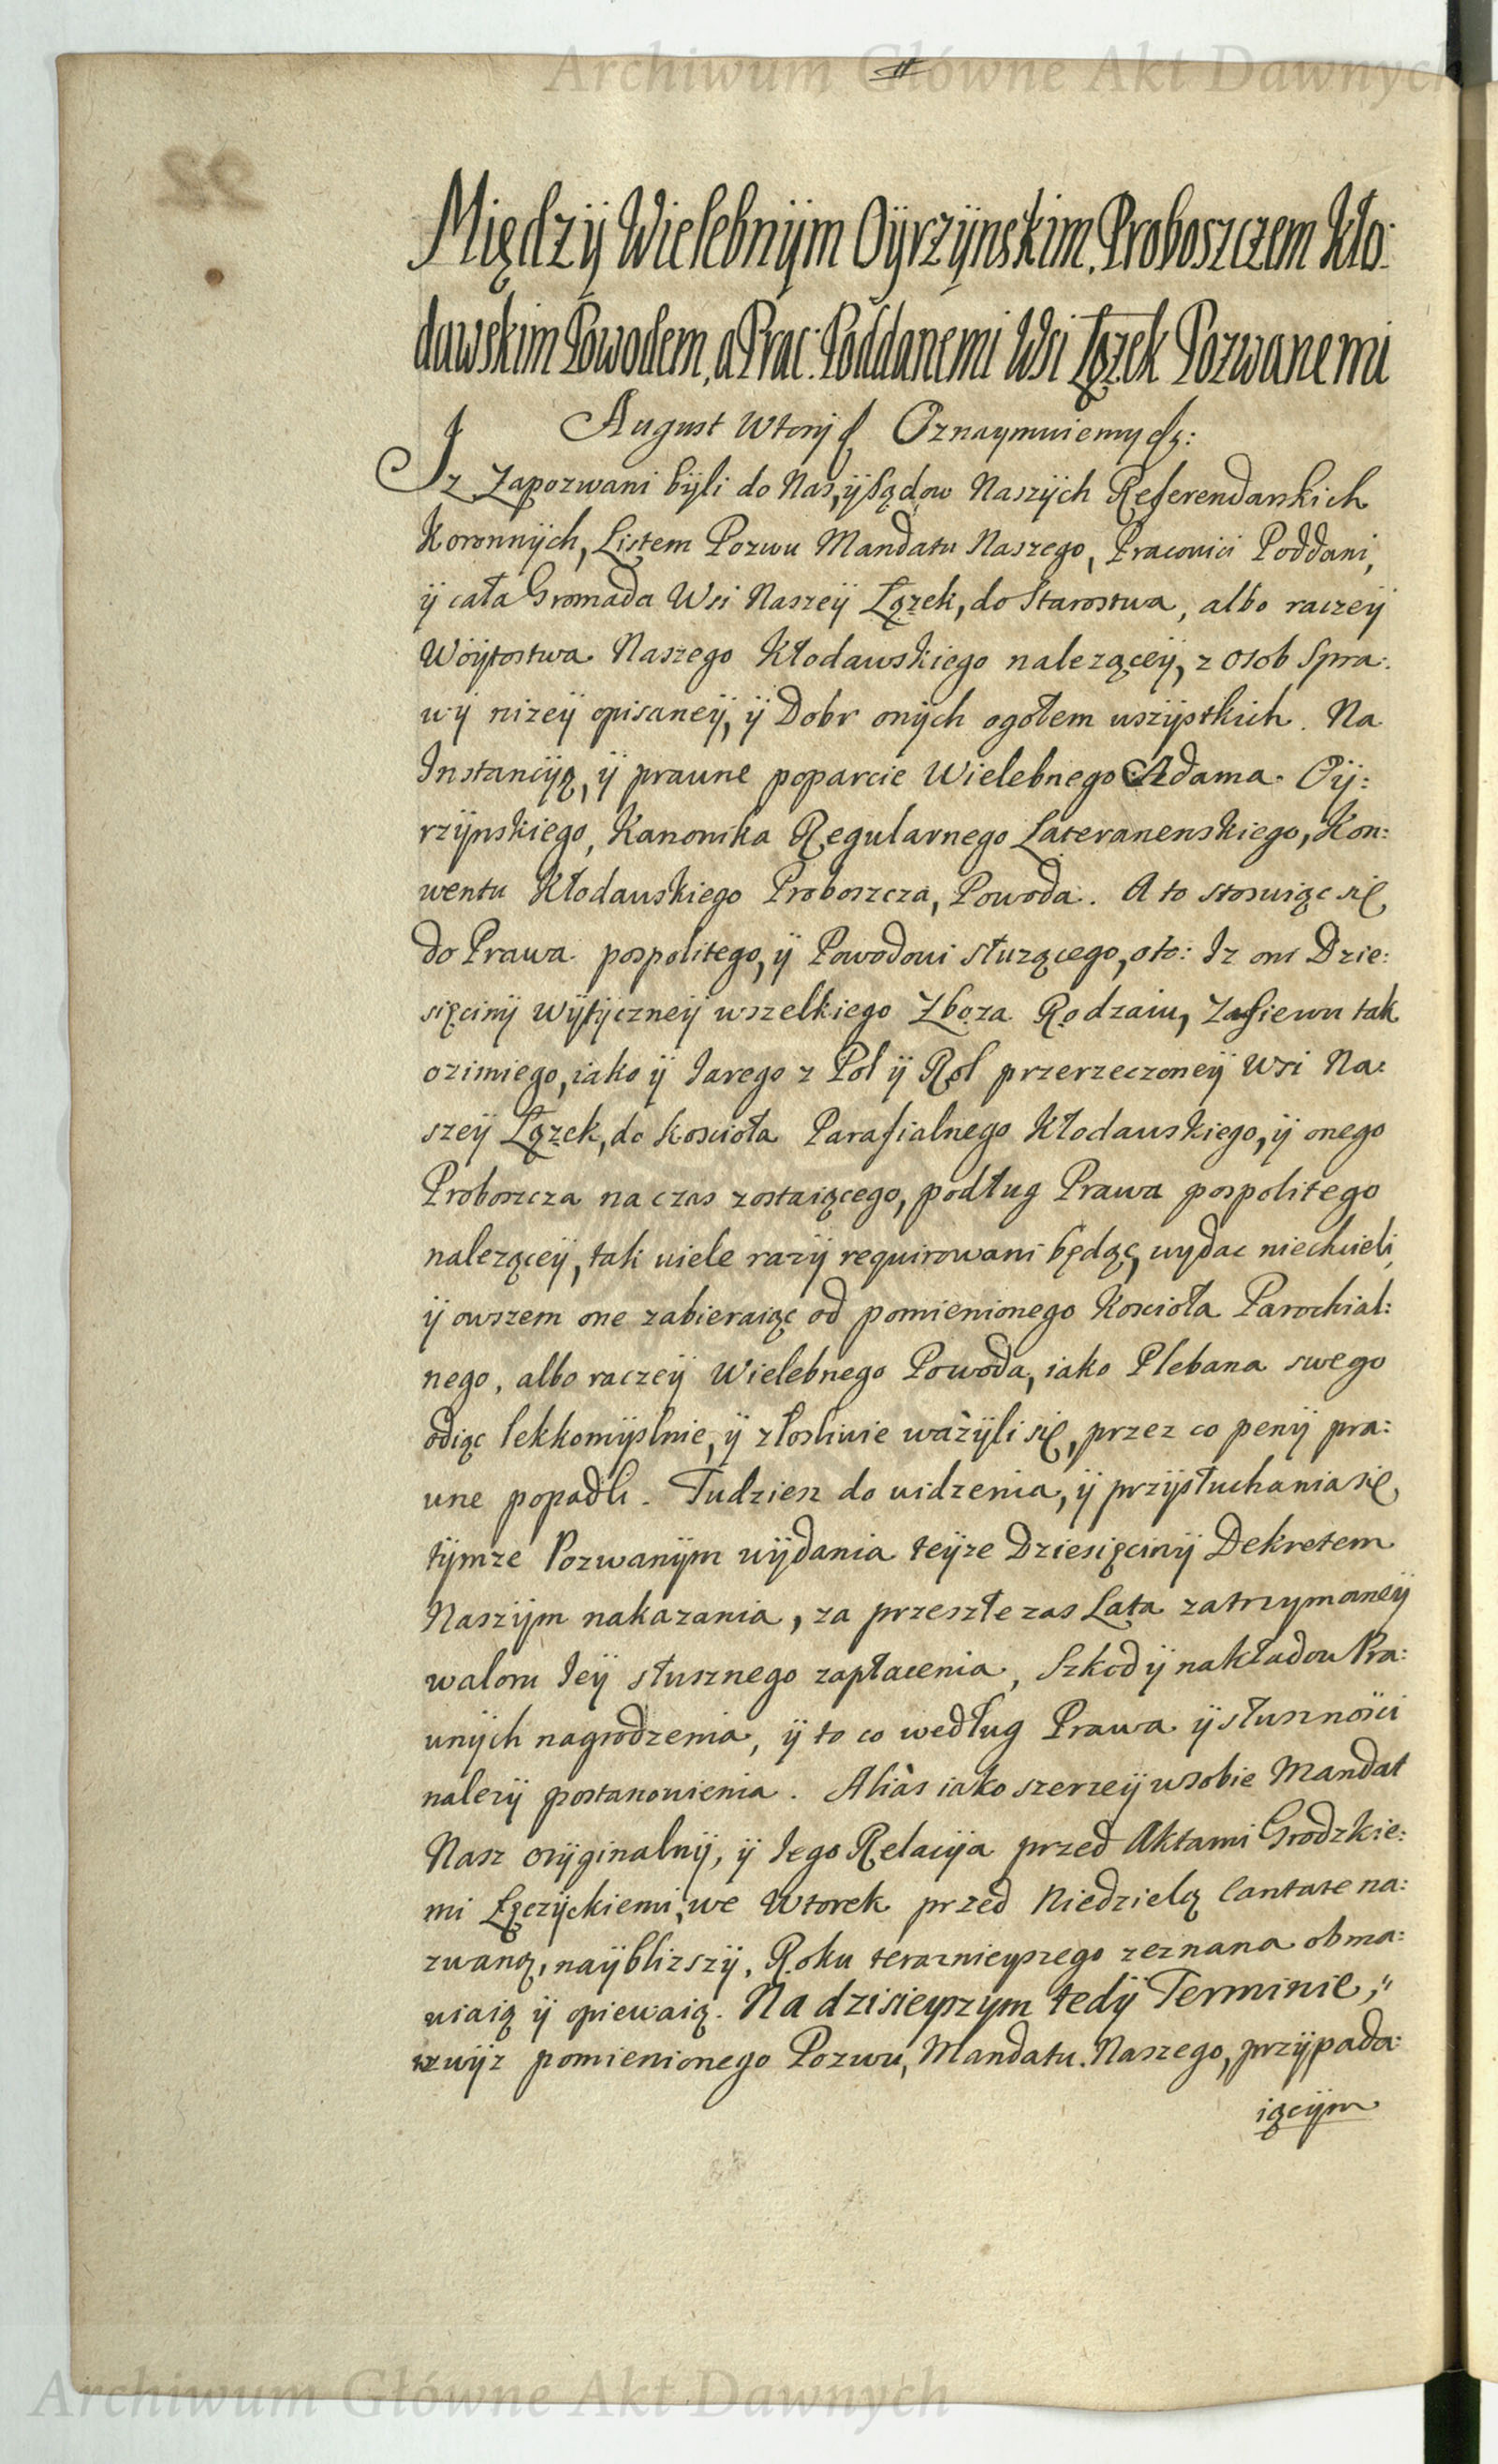 Archiwum Główne Akt Dawnych
22
Międzÿ Wielebnÿm Oÿrzÿnskim, Proboszczem Kło:
dawskim Powodem, a Prac: Poddanemi Wsi Łązek Pozwanemi
August Wtorÿ &, Oznaymuiemy &:
Iz Zapozwani bÿli do Nas, ÿ Sądow Naszÿch Referendarskich
Koronnÿch, Listem Pozwu Mandatu Naszego, Pracowici Poddani,
ÿ cała Gromada Wsi Naszeÿ Łązek, do Starostwa, albo raczeÿ
Woÿtostwa Naszego Kłodawskiego naleząceÿ, z osob Spra:
wÿ nizeÿ opisaneÿ, ÿ Dobr onÿch ogołem wszÿstkich. Na
Instancÿą, ÿ prawne poparcie Wielebnego Adama Oÿ:
rzÿnskiego, Kanonika Regularnego Lateranenskiego, Kon:
wentu Kłodawskiego Proboszcza, Powoda. A to stosuiąc się
do Prawa pospolitego, ÿ Powodowi słuzącego, oto: Iz oni Dzie:
sięcinÿ Wÿtÿczneÿ wszelkiego Zboza Rodzaiu, Zasiewu tak
ozimiego, iako ÿ Iarego z Pol ÿ Rol przerzeczoneÿ Wsi Na:
szeÿ Łązek, do Koscioła Parafialnego Kłodawskiego, ÿ onego
Proboszcza na czas zostaiącego, podług Prawa pospolitego
nalezącеÿ, tak wiele razÿ requirowani będąc, wydac niechcieli,
ÿ owszem one zabieraiąc od pomienionego Koscioła Parochial:
nego, albo raczeÿ Wielebnego Powoda, iako Plebana swego
odiąc lekkomÿslnie, ÿ złosliwie wazÿli się, przez co penÿ pra:
wne popadli. Tudziesz do widzenia, ÿ przÿsłuchania się
tÿmze Pozwanÿm wÿdania teÿze Dziesięcinÿ Dekretem
Naszÿm nakazania, za przeszłe zas Lata zatrzymaneÿ
waloru Ieÿ słusznego zapłacenia, Szkod ÿ nakładow Pra:
wnÿch nagrodzenia, ÿ to co według Prawa ÿ słusznosci
nalezÿ postanowienia. Aliàs iako szerzeÿ w sobie Mandat
Nasz orÿginalnÿ, ÿ Iego Relacÿa przed Aktami Grodzkie:
mi Łęczÿckiemi, we Wtorek przed Niedzielą Cantate na:
zwaną, naÿblizszÿ, Roku terazniejszego zeznana obma:
wiaią ÿ opiewaią. Na dzisieÿszym tedÿ Terminie,"
zwÿz pomienionego Pozwu, Mandatu Naszego, przÿpada:
iącÿm
Archiwum Główne Akt Dawnych